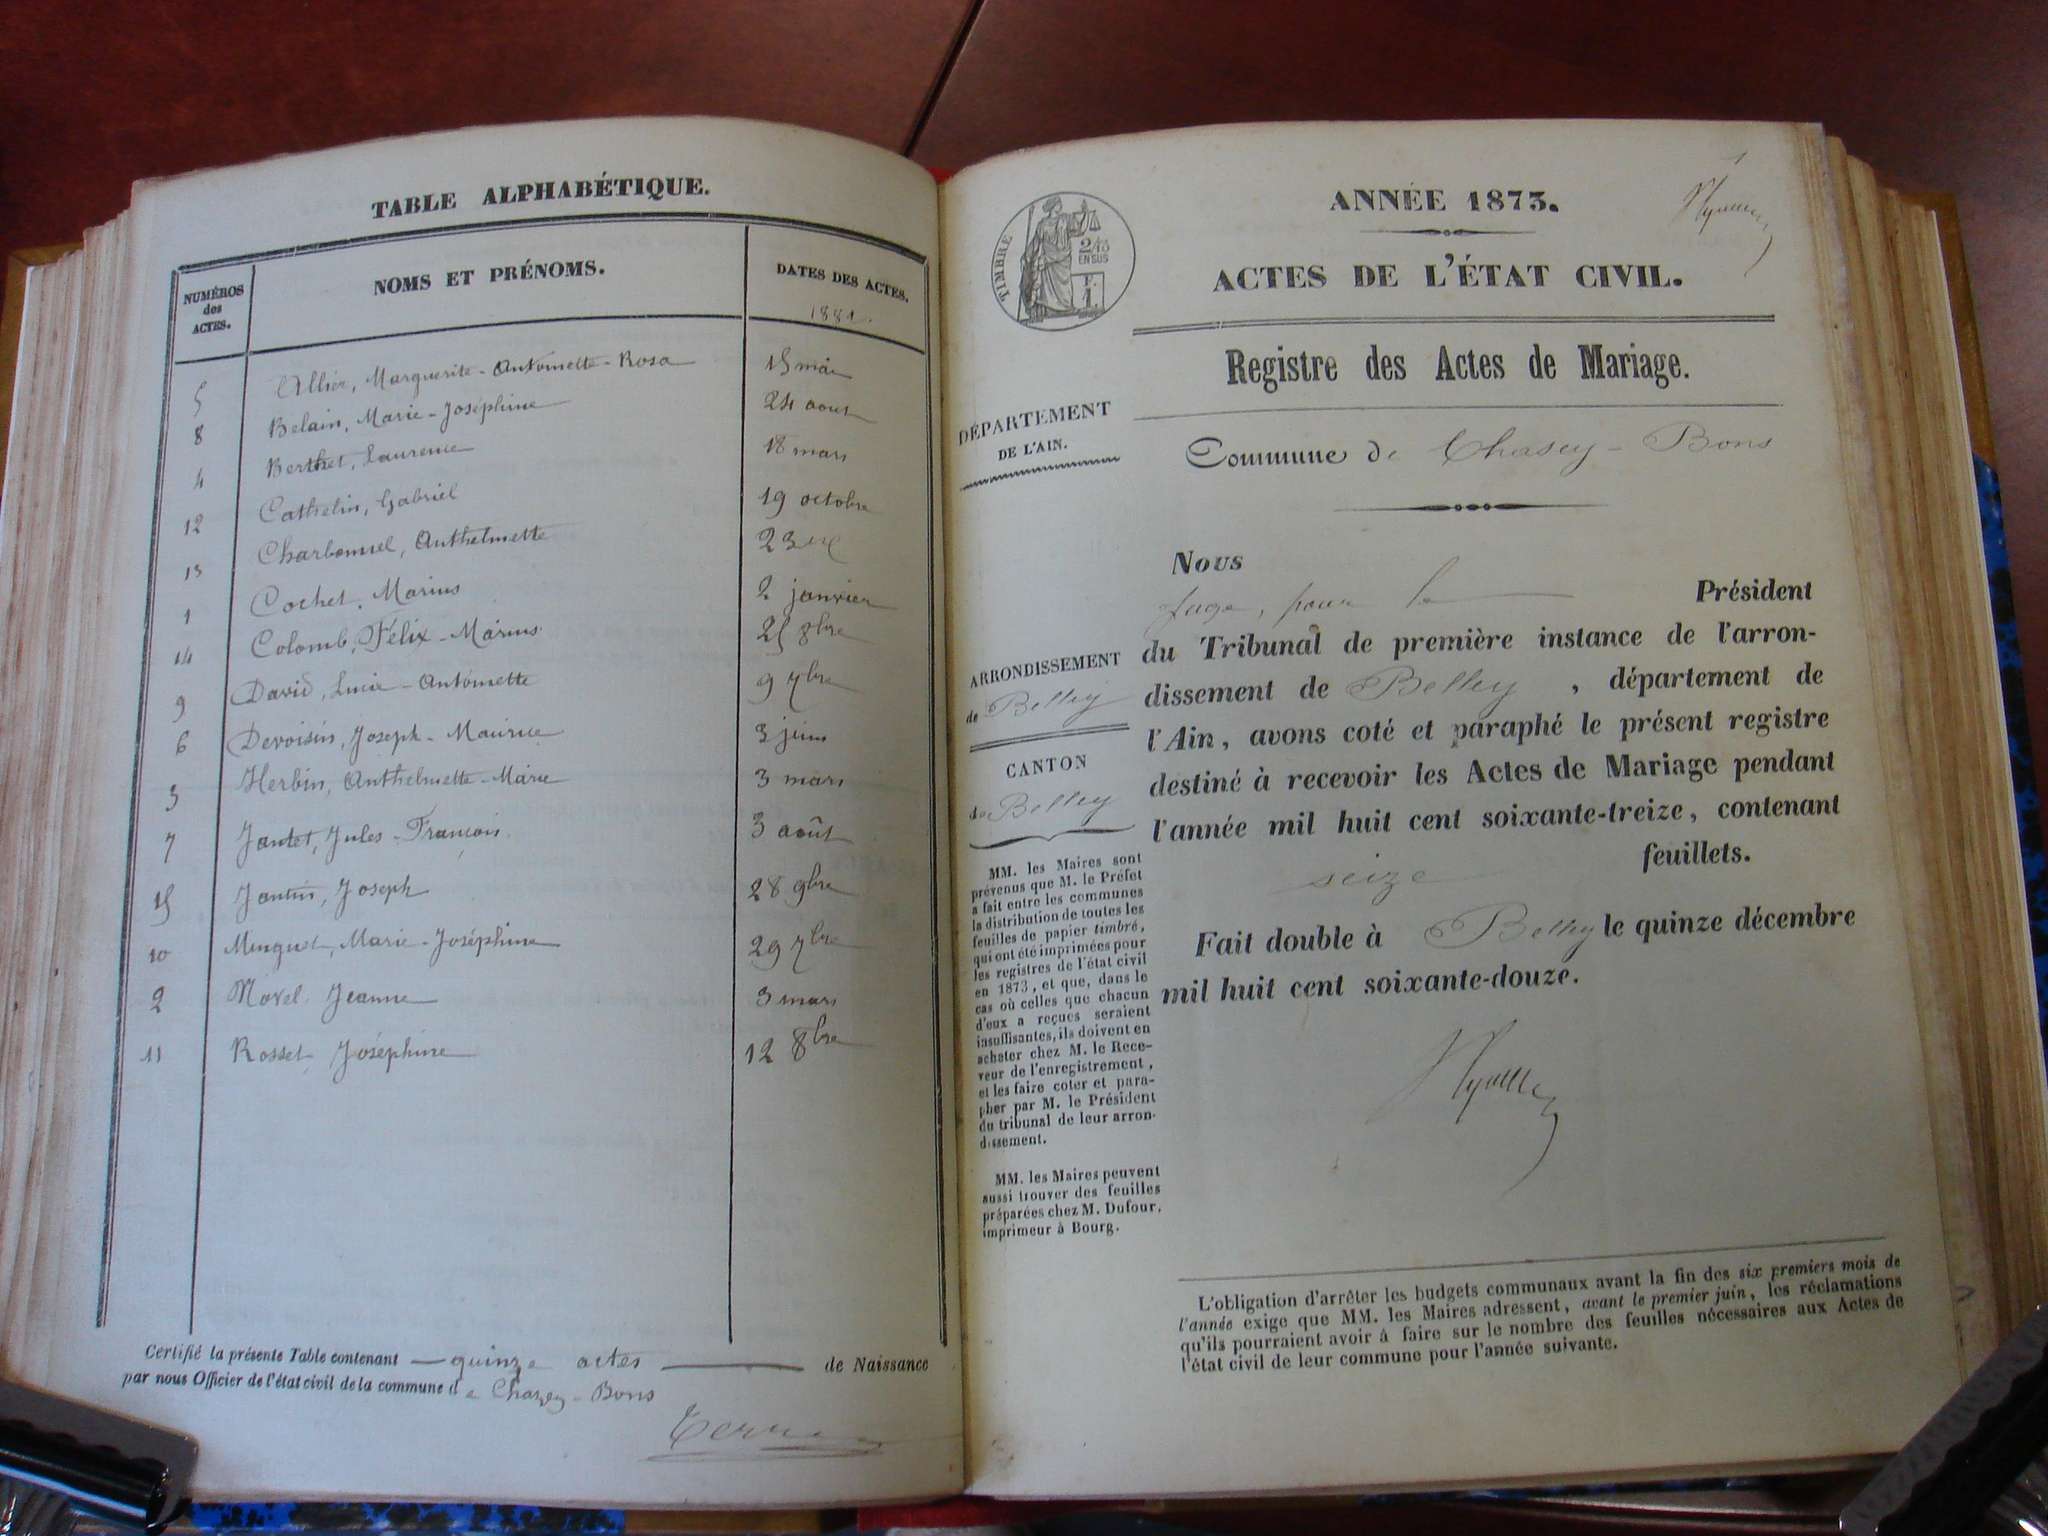 TABLE ALPHABÉTIQUE.
NUMÉROS des ACTES. NOMS ET PRÉNOMS. DATES DES ACTES.
1881.
5 Allier, Marguerite-Antoinette-Rosa 15 mai
8 Belain, Marie-Joséphine 24 aout
4 Berthet, Laurence 18 mars
12 Cathelin, Gabriel 19 octobre
13 Charbonnel, Anthelmette 23
1 Cochet, Marius 2 janvier
14 Colomb, Félix-Marius 25 8bre
9 David, Lucie-Antoinette 9 7bre
6 Devoisin, Joseph-Maurice 3 juin
3 Herbin, Anthelmette-Marie 3 mars
7 Jantet, Jules-François 3 août
15 Jantin, Joseph 28 9bre
10 Minguet, Marie-Joséphine 29 7bre
2 Morel Jeanne 3 mars
11 Rosset Joséphine 12 8bre
Certifié la présente Table contenant quinze actes de Naissance
par nous Officier de l'état civil de la commune de Chazey-Bons
TIMBRE
2/10
EN SUS
F.
1.
ANNÉE 1873.
ACTES DE L'ÉTAT CIVIL.
Registre des Actes de Mariage.
DÉPARTEMENT
DE L'AIN.
Commune de Chasey-Bons
Nous
Juge, pour le Président
du Tribunal de première instance de l'arron-
dissement de Belley, département de
l'Ain, avons coté et paraphé le présent registre
destiné à recevoir les Actes de Mariage pendant
l'année mil huit cent soixante-treize, contenant
seize feuillets.
Fait double à Belley le quinze décembre
mil huit cent soixante-douze.
ARRONDISSEMENT
de Belley
CANTON
de Belley
MM. les Maires sont
prévenus que M. le Préfet
a fait entre les communes
la distribution de toutes les
feuilles de papier timbré,
qui ont été imprimées pour
les registres de l'état civil
en 1873, et que, dans le
cas où celles que chacun
d'eux a reçues seraient
insuffisantes, ils doivent en
acheter chez M. le Rece-
veur de l'enregistrement,
et les faire coter et para-
pher par M. le Président
du tribunal de leur arron-
dissement.
MM. les Maires peuvent
aussi trouver des feuilles
préparées chez M. Dufour,
imprimeur à Bourg.
L'obligation d'arrêter les budgets communaux avant la fin des six premiers mois de
l'année exige que MM. les Maires adressent, avant le premier juin, les réclamations
qu'ils pourraient avoir à faire sur le nombre des feuilles nécessaires aux Actes de
l'état civil de leur commune pour l'année suivante.